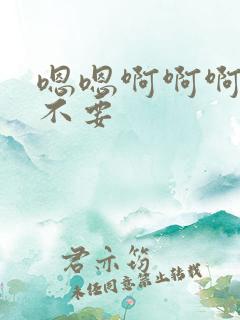 嗯嗯啊啊啊
不要
君亦筠
未经同意禁止转载